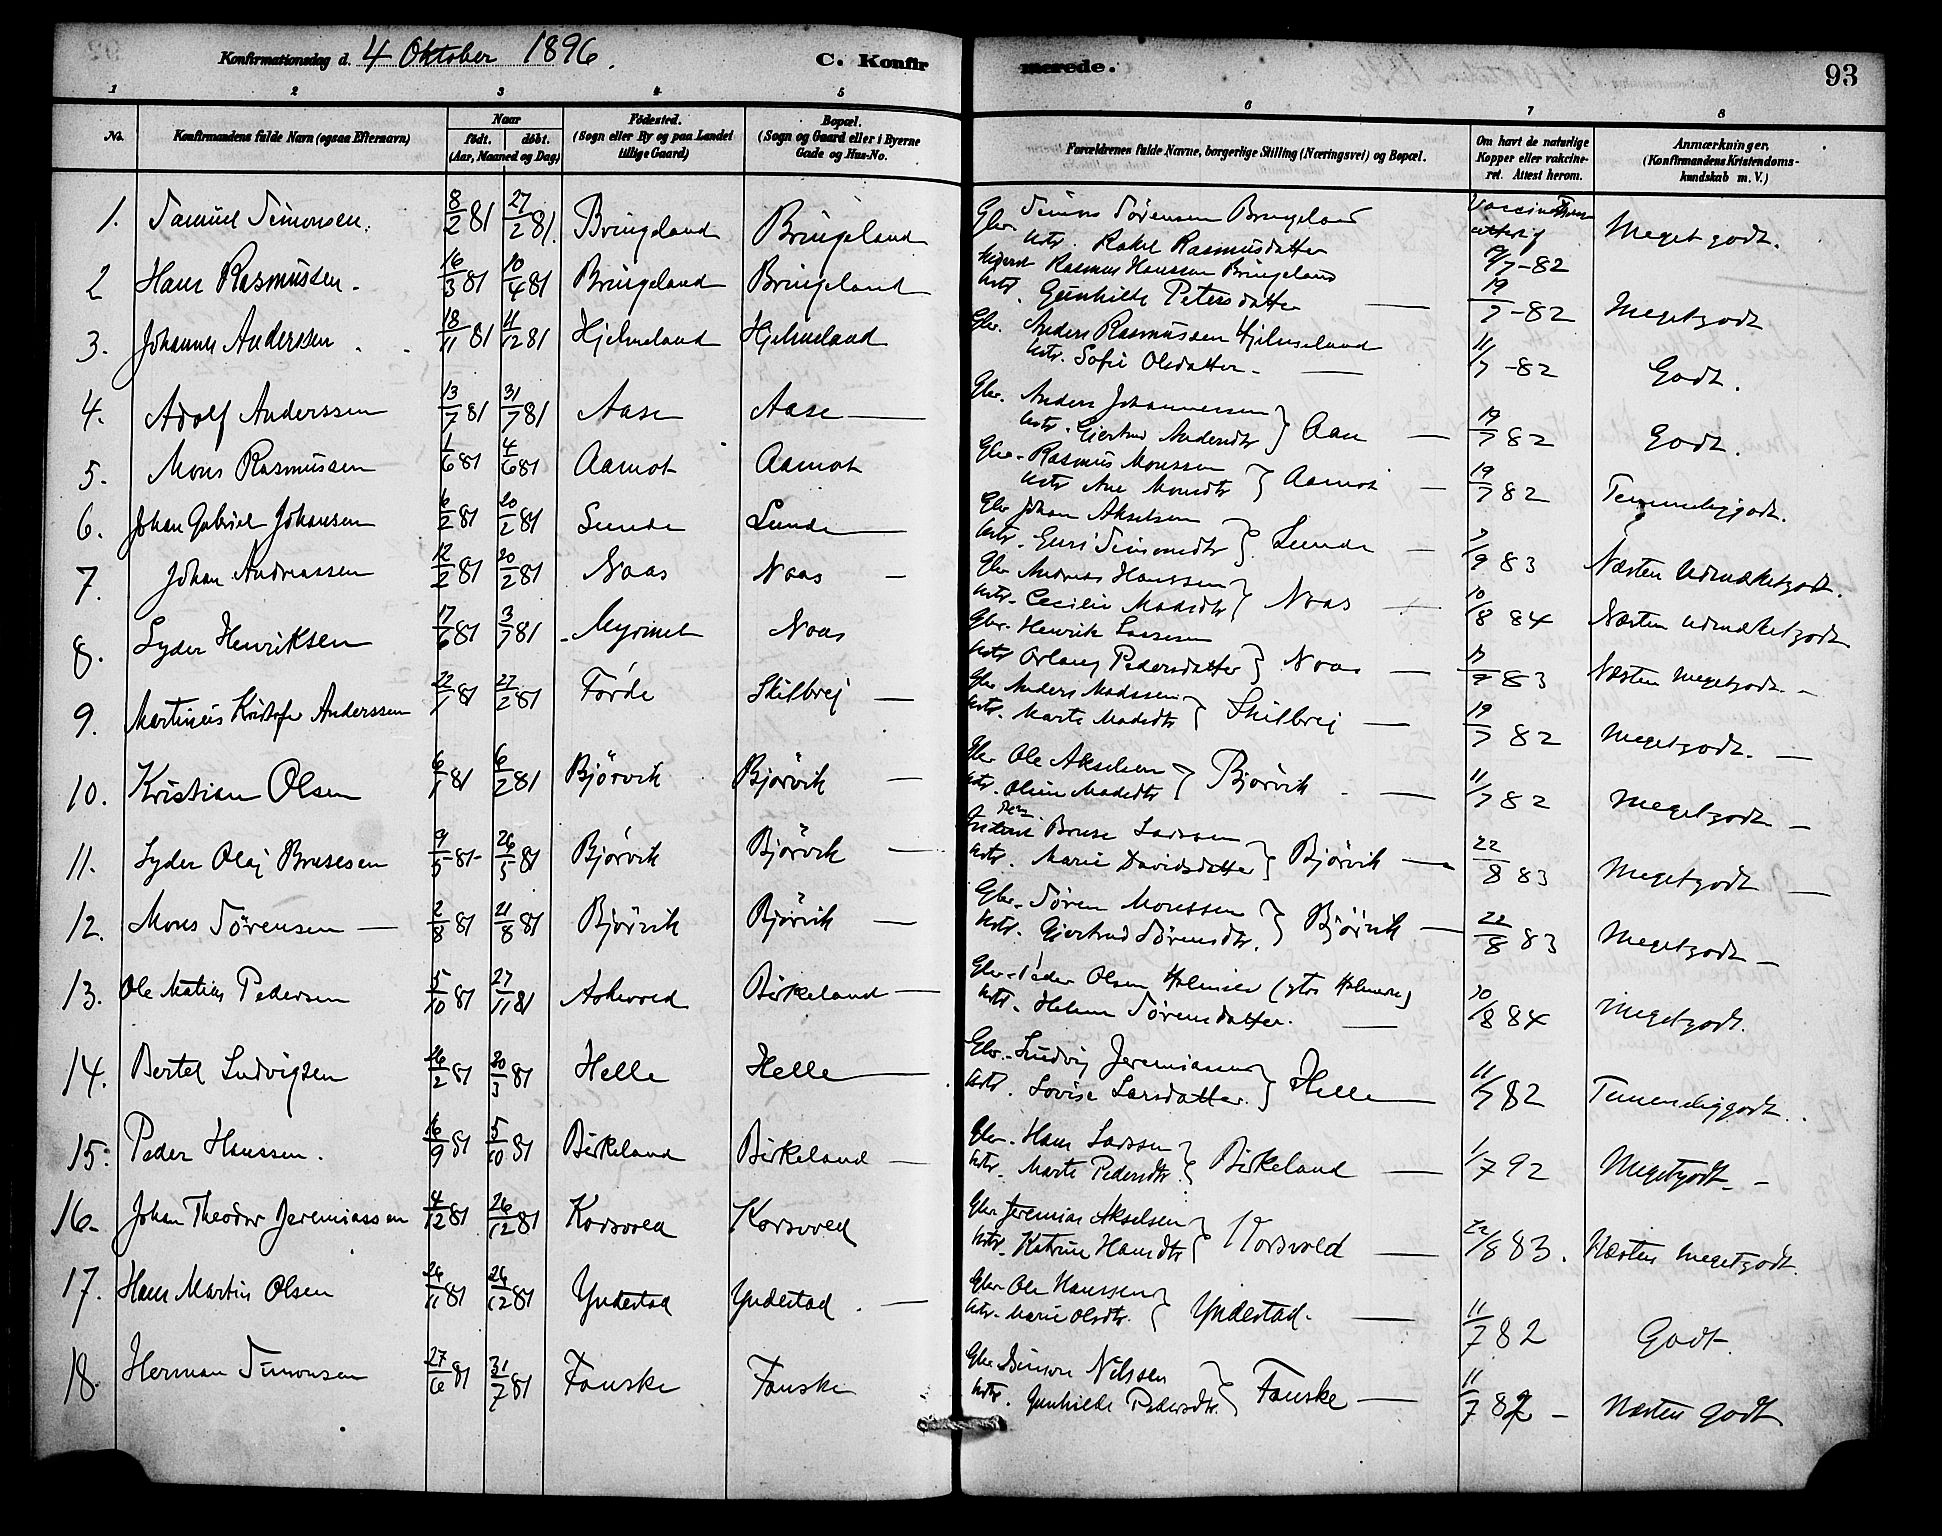 Konfirmationsdag d. 4 Oktober 1896. C. Konfirmerede. 93
1 2 3 4 5 6 7 8
No. Konfirmandens fulde Navn (ogsaa Efternavn) Naar födt. döbt. (Aar, Maaned og Dag) Födested. (Sogn eller By og paa Landet tillige Gaard) Bopæl. (Sogn og Gaard eller i Byerne Gade og Hus-No. Forældrenes fulde Navne, borgerlige Stilling (Næringsvei) og Bopæl. Om havt de naturlige Kopper eller vakcineret. Attest herom. Anmærkninger. (Konfirmandens Kristendomskundskab m. V.)
1. Samuel Simonsen. 8/2 81 27/2 81. Bringeland Bringeland Gbr. Simon Sörensen Bringeland Meget godt.
Kstr. Rakel Rasmusdatter /7-82
2 Hans Rasmussen. 16/3 81 10/4 81 Bringeland Bringeland Rasmus Hanssen Bringeland 19/7-82 Megetgodt
Kstr. Gunhilde Petersdatter —
3. Johannes Anderssen 18/11 81 11/12 81 Hjelmeland Hjelmeland Gbr. Anders Rasmussen Hjelmeland 11/7-82 Godt.
Kstr. Sofie Olsdatter - —
4. Adolf Anderssen 13/7 81 31/7 81 Aase Aase — Gbr. Anders Johannessen } Aase — 19/7 82 Godt.
Kstr. Gjertrud Andersdtr
5. Mons Rasmussen 1/6 81 4/6 81 Aamot Aamot Gbr. Rasmus Monssen } Aamot — 19/7 82 Temmeliggodt.
Kstr Ane Monsdtr
6. Johan Gabriel Johansen 6/2 81 20/2 81 Sunde Sunde — Gbr Johan Akselsen } Sunde — /9 83 Næsten Udmærketgodt.
Kstr. Guri Simonsdtr
7. Johan Andreassen 12/2 81 20/2 81 Naas Naas — Gbr Andreas Hanssen } Naas — 10/8 84 Næsten udmærketgodt
Kstr. Cecilie Madsdtr
8. Lyder Henriksen 17/6 81 3/7 81 Myrmel Naas Gbr. Henrik Lassesen } Naas — /9 83 Næsten megetgodt -
Kstr Pedersdatter
9. Martinus Kristofer Anderssen 22/1 81 27/2 81 Förde Skilbrej — Gbr Anders Madssen } Skilbrej — 19/7 82 Megetgodt. —
Kstr. Marte Madsdtr
10. Kristian Olsen 6/1 81 6/2 81 Björvik Björvik — Gbr Ole Akselsen } Björvik — 11/7 82 Megetgodt —
Kstr. Oline Madsdtr
11. Lyder Olaj Brusesen 9/5 81 26/5 81 Björvik Björvik — Bruse Larssen } Björvik — 22/8 83 Megetgodt —
Kstr. Marie Davidsdatter
12. Mons Sörensen — 2/8 81 21/8 81 Björvik Björvik — Gbr. Sören Monssen } Björvik — 22/8 83 Megetgodt —
Kstr. Gjertrud Sörensdtr.
13. Ole Matias Pedersen 5/10 81 27/11 81 Askevold Birkeland — Gbr. Peder Olsen /8 84 Megetgodt.
Kstr. Helene Sörensdatter. —
14. Bertel Ludvigsen 26/2 81 20/3 81 Helle Helle — Gbr. Ludvig Jeremiassen } Helle — 11/7 82 Temmeliggodt.
Kstr. Lovise Larsdatter.
15. Peder Hanssen. 16/9 81 5/10 81 Birkeland Birkeland — Gbr. Hans Larssen } Birkeland — 1/7 92 Megetgodt. -
Kstr. Marte Pedersdtr.
16. Johan Theodor Jeremiassen 4/12 81 26/12 81 Korsvold Korsvold Gbr Jeremias Akselsen } Korsvold — 22/8 83. Næsten megetgodt.
Kstr. Katrine Hansdtr
17. Hans Martin Olsen 26/11 81 26/12 81 Yndestad Yndestad. — Gbr Ole Hanssen } Yndestad. — 11/7 82 Godt.
Kstr. Marie Olsdtr.
18. Herman Simonsen 27/6 81 31/7 81 Fauske Fauske Gbr Simon Nilssen } Fauske — 11/7 82 - Næsten godt
Kstr. Gunhilde Pedersdtr.